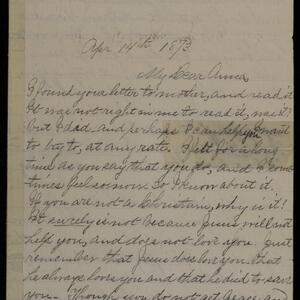 Apr 14th 1893
My Dear Anna
I found your letter to mother, and read it
It was not right in me to read it, was it?
But I did. and perhaps I can help you I want
to try to, at any rate. I felt for a long
time as you say that you do, and I some-
times feel so now so I know about it.
If you are not a Christian, why is it?
It surely is not because Jesus will not
help you, and does not love you. Just
remember that Jesus does love you. that
he always loves you and that he died to save
you. Though you do not